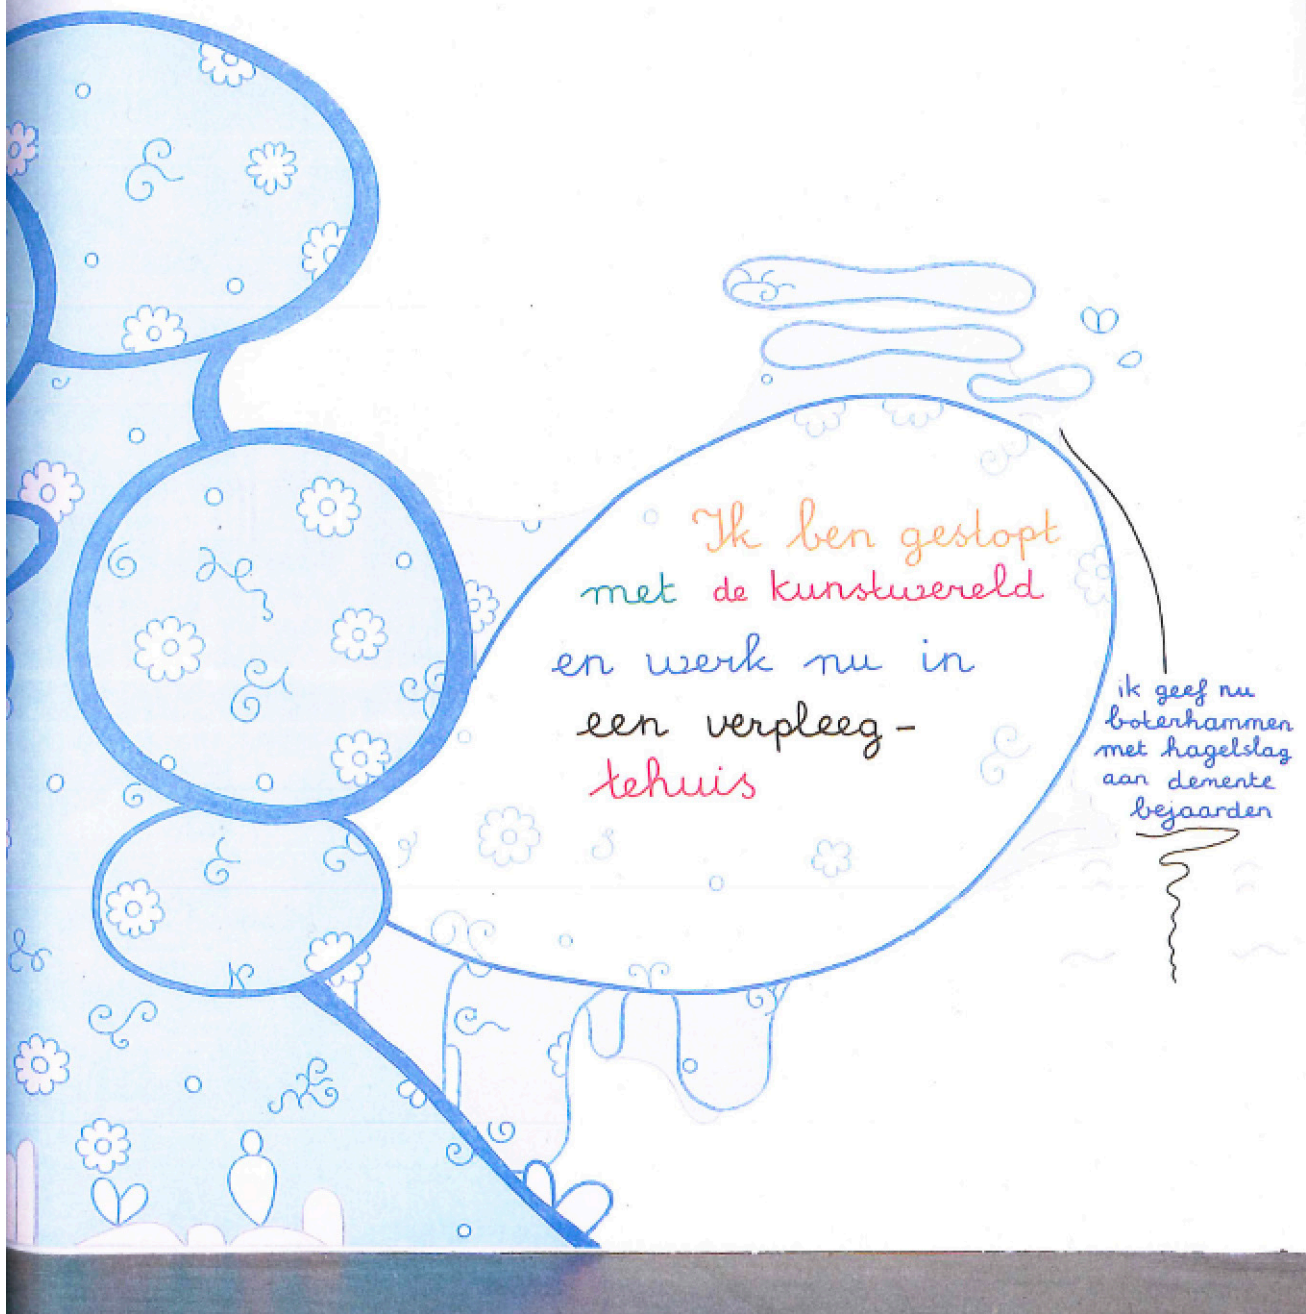 Ik ben gestopt
met de kunstwereld
en werk nu in
een verpleeg-
tehuis
ik geef nu
boterhammen
met hagelslag
aan demente
bejaarden